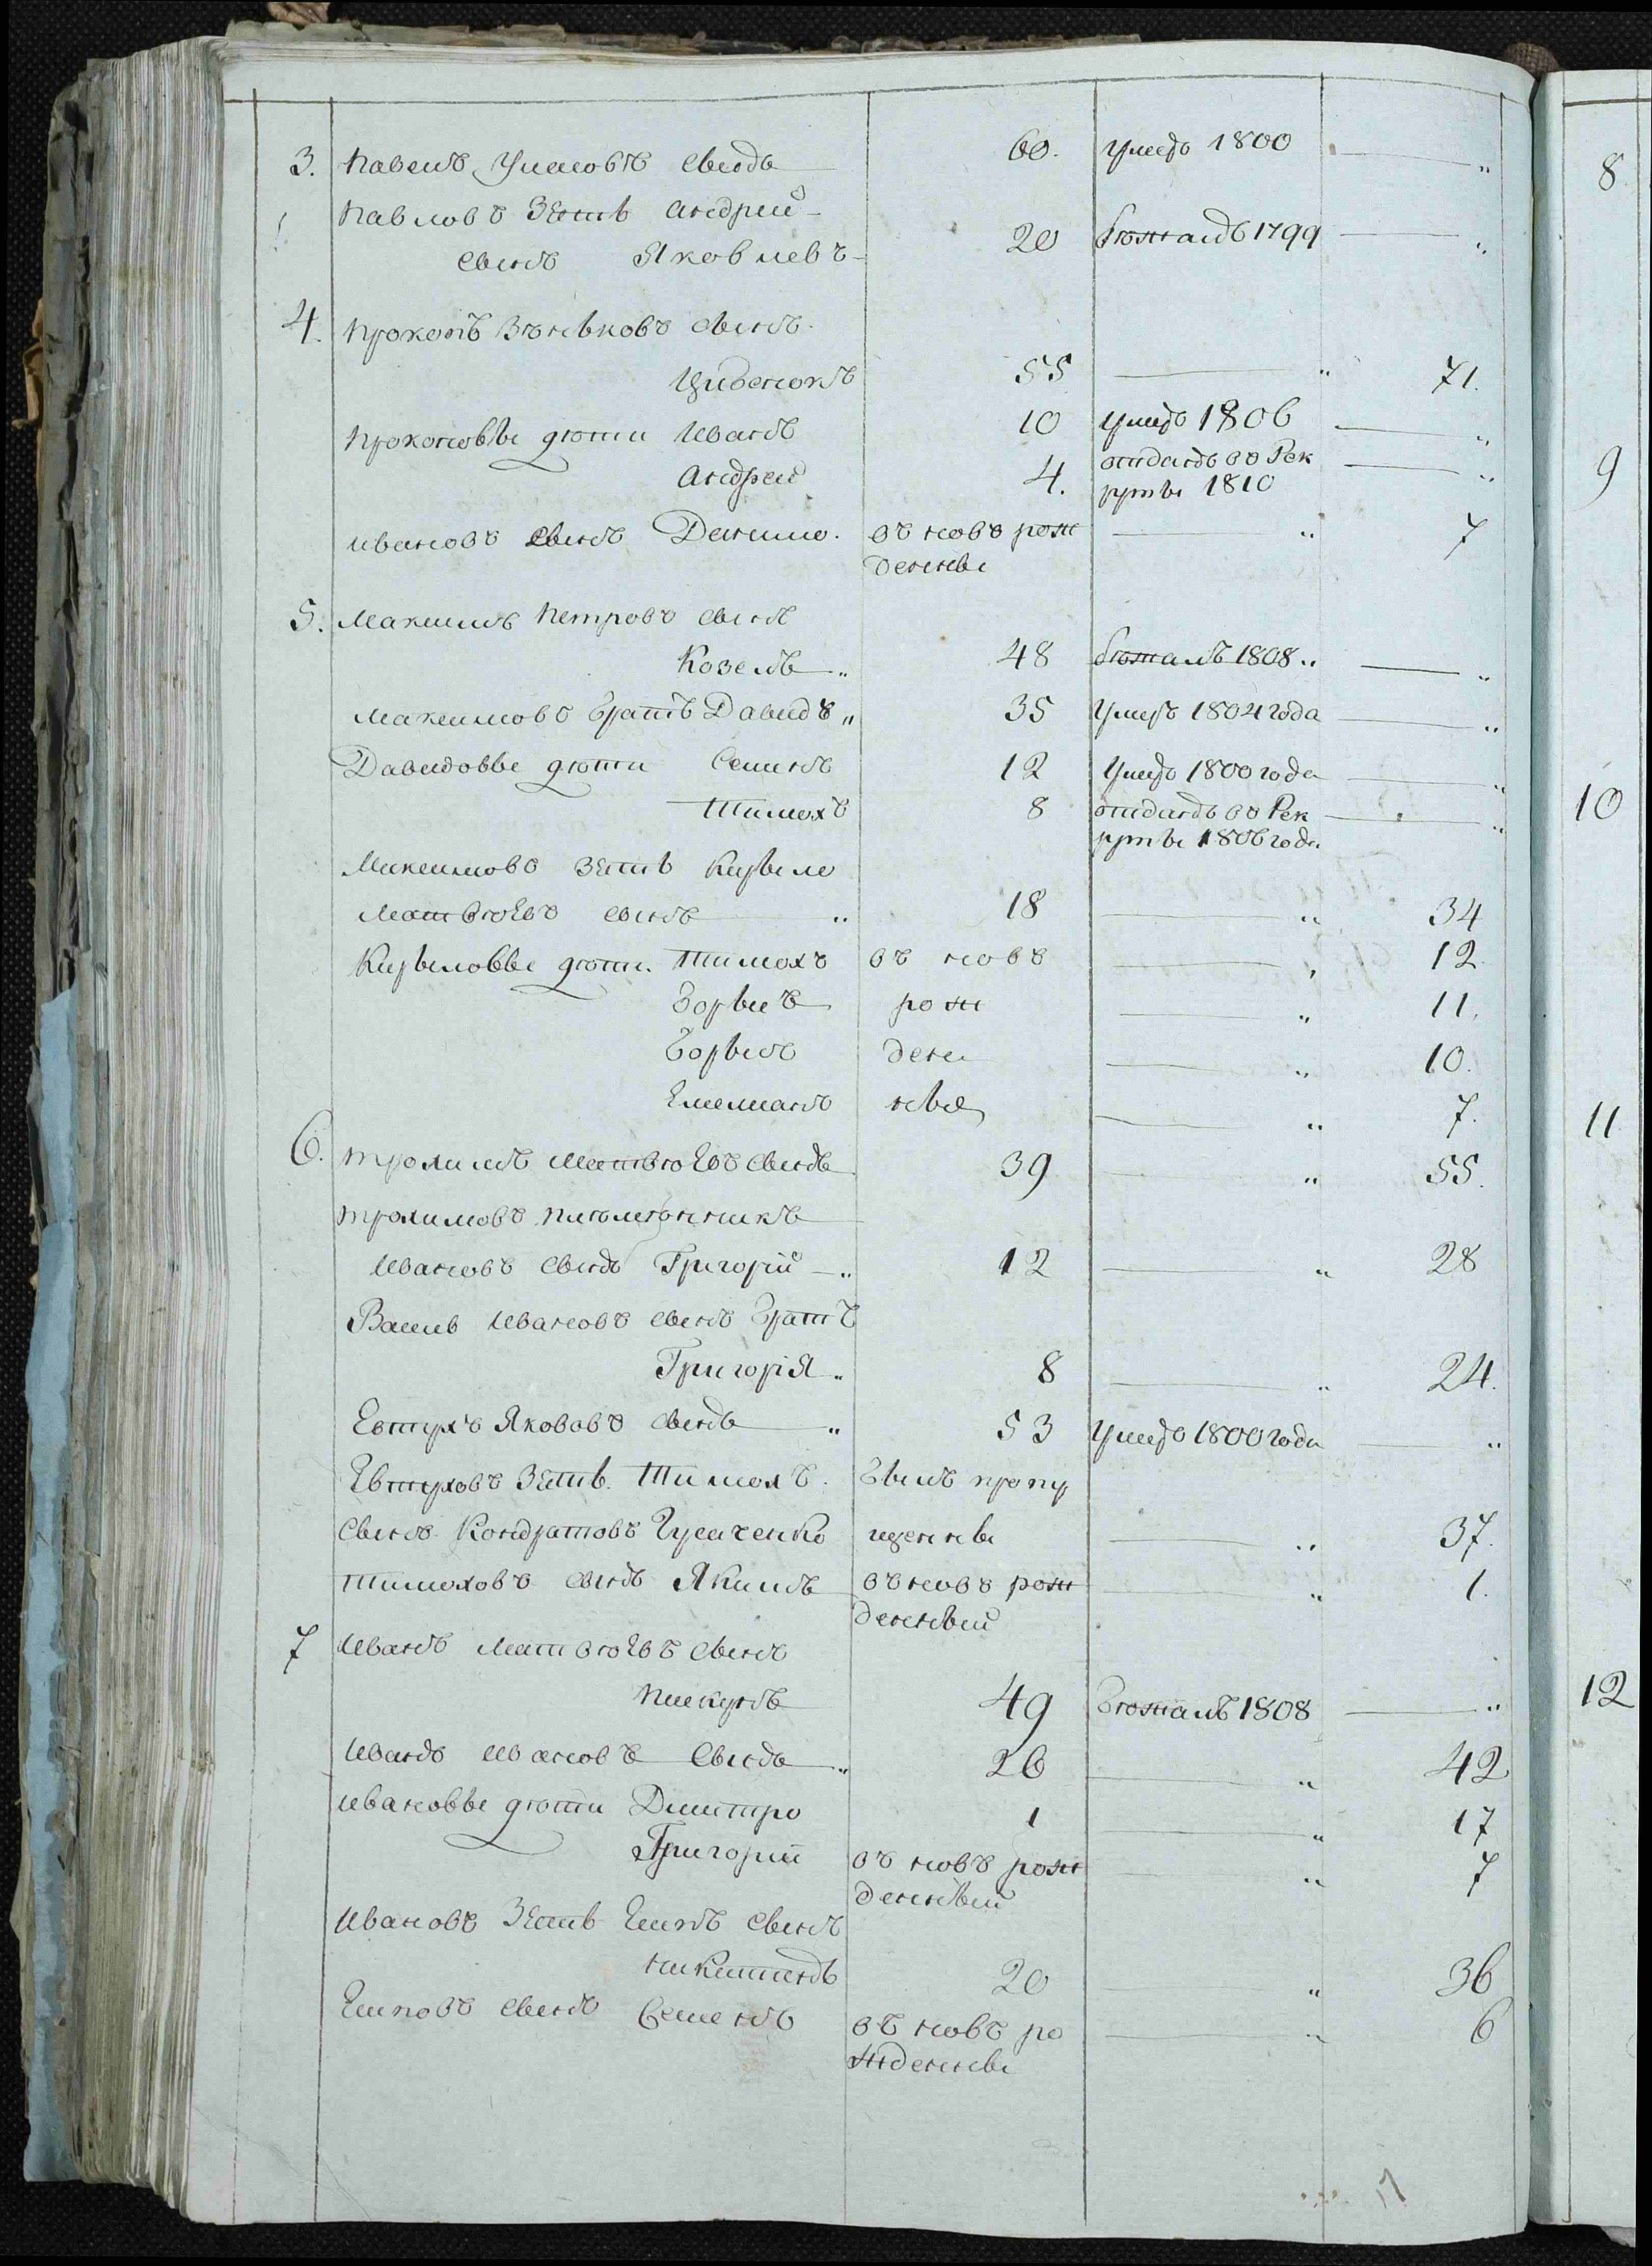 3. Павелъ Уласовъ сынъ 60. Умеръ 1800 — "
Павловъ зять Андрей
сынъ Яковлевъ 20 бѣжалъ 1799 — "
4. Прокопъ Зѣньковъ сынъ
Цибенокъ 55 — " 71.
Прокоповы дѣти Иванъ 10 умеръ 1806 — "
Андрей 4. отданъ въ Рек
руты 1810 — "
Ивановъ сынъ Данило. въ новъ рож
денны — " 7
5. Максимъ Петровъ сынъ
Козелъ " 48 бѣжалъ 1808 " — "
Максимовъ братъ Давидъ " 35 Умеръ 1804 года — "
Давидовы дѣти Семенъ 12 Умеръ 1800 года — "
Тимохъ 8 отданъ въ Рек
руты 1806 года — "
Максимовъ зять Кирыло
Матвѣевъ сынъ " 18 — " 34
Кирыловы дѣти Тимохъ въ новъ — " 12
Борысъ рож — " 11.
Борысъ ден — " 10.
Емельянъ ны — " 7.
6. Трохимъ Матвѣевъ сынъ 39 — " 55.
Трохимовъ племѣнникъ
Ивановъ сынъ Григорій — " 12 — " 28
Василь Ивановъ сынъ братъ
Григорія " 8 — " 24.
Евтухъ Якововъ сынъ " 53 Умеръ 1800 года — "
Евтуховъ зять Тимохъ былъ пропу
сынъ Кондратовъ щенны — " 37.
Тимоховъ сынъ Якимъ въ новъ рож
денный — " 1.
7 Иванъ Матвѣевъ сынъ
Пискунъ 49 бѣжалъ 1808 — "
Иванъ Ивановъ сынъ " 26 — " 42
Ивановы дѣти Дмитро 1 — " 17
Григорій въ новъ рож
денный — " 7
Ивановъ зять Есипъ сынъ
Никитинъ 20 — " 36
Есиповъ сынъ Семенъ въ новъ ро
жденны — " 6
8
9
10
11
12